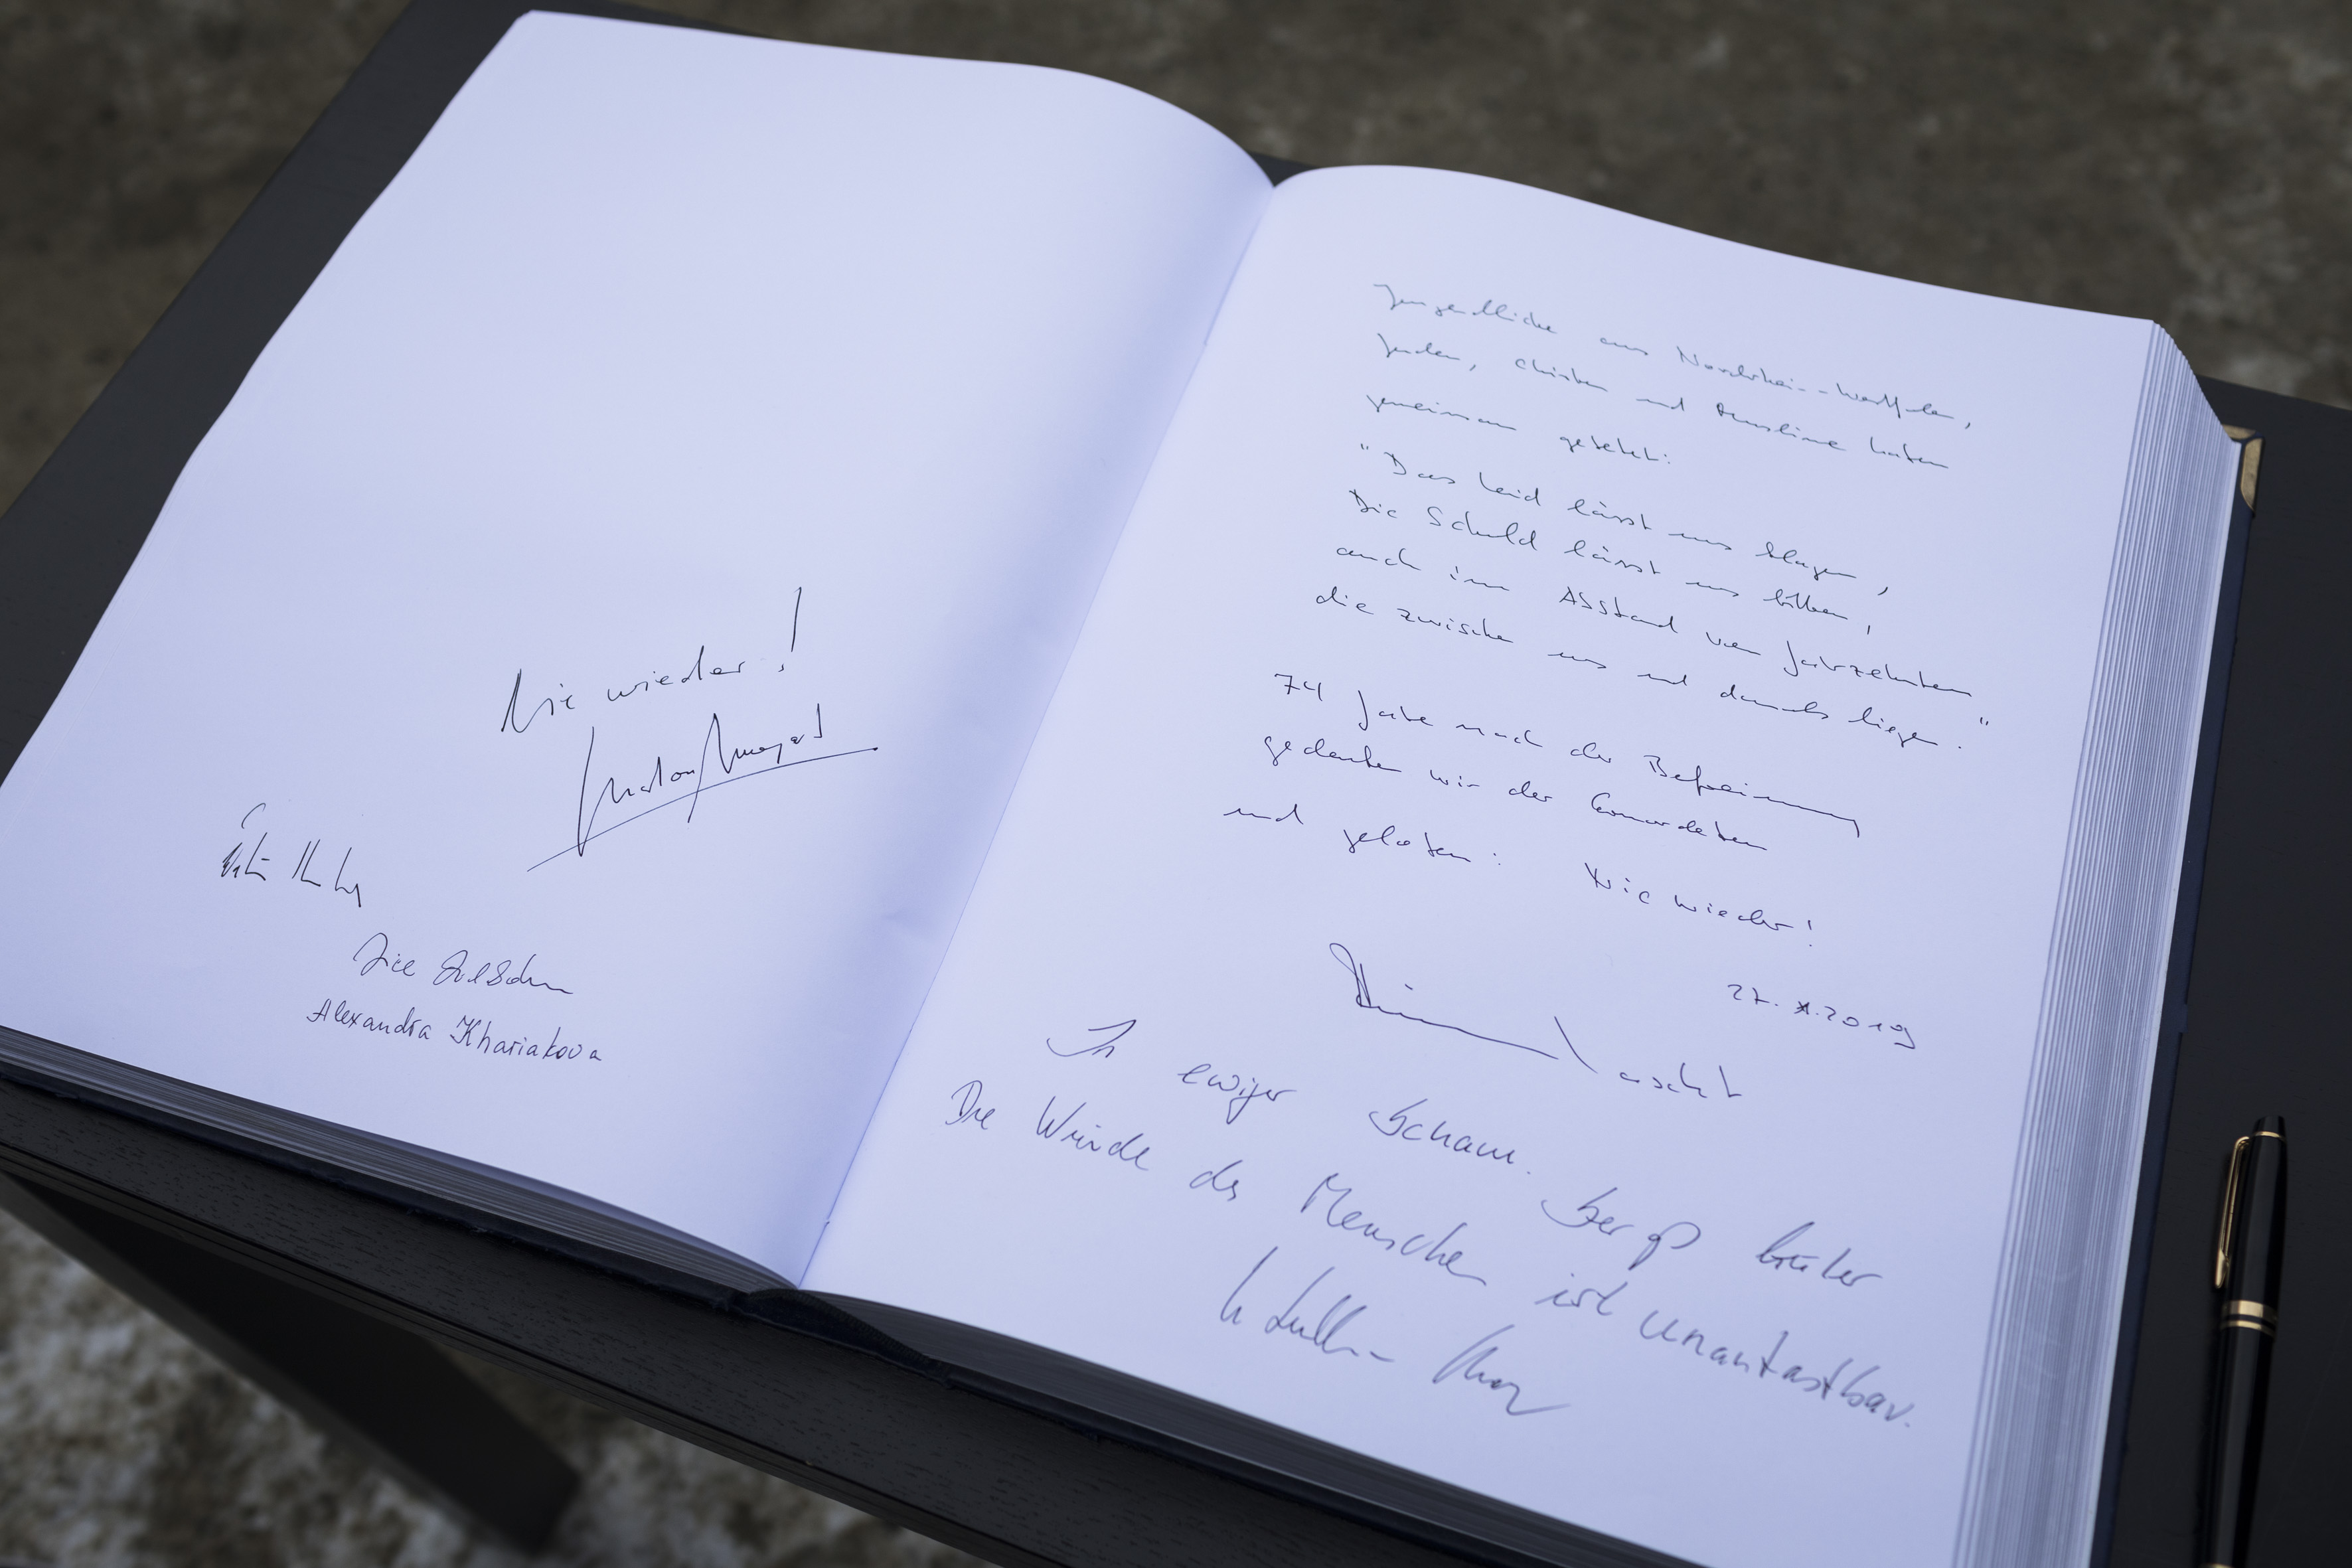 Nie wieder!
Alexandra Khariakova
Jugendliche aus Nordrhein-Westfalen,
Juden, Christen und Muslime haben
gemeinsam gebetet:
"Das Leid lässt uns klagen,
Die Schuld lässt uns bitten,
auch im Abstand von Jahrzehnten
die zwischen uns und damals liegen."
74 Jahre nach der Befreiung
gedenken wir der Ermordeten
und geloben: Nie wieder!
27. X. 2019
Armin Laschet
In ewiger Scham.
Die Würde des Menschen ist unantastbar.